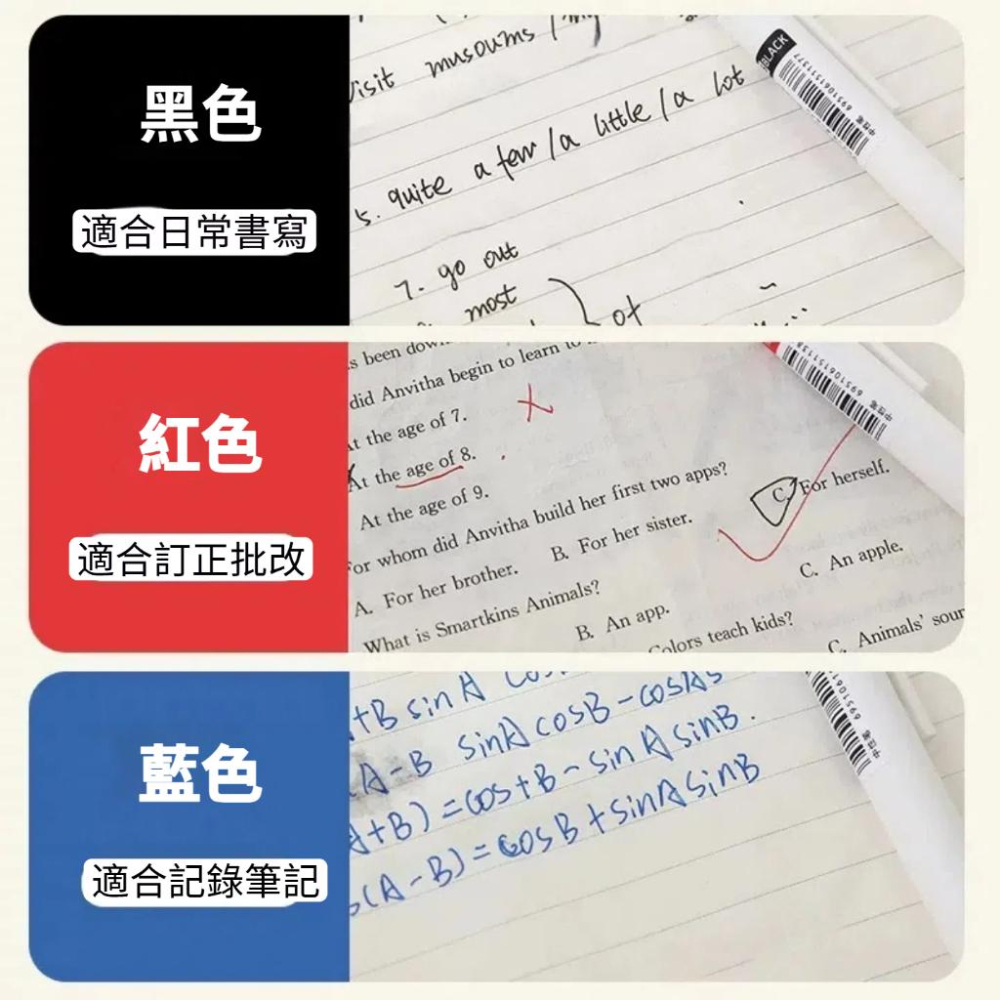 黑色
適合日常書寫
visit musoums / my
5. quite a few / a little / a lot
7. go out
most
of
BLACK
6951061511377
中性笔
紅色
適合訂正批改
s been dow
did Anvitha begin to learn to
At the age of 7.
At the age of 8.
At the age of 9.
For whom did Anvitha build her first two apps?
A. For her brother. B. For her sister. C. For herself.
What is Smartkins Animals?
B. An app. C. An apple.
Colors teach kids?
C. Animals' soun
中性笔
藍色
適合記錄筆記
+B sinA cos
A-B sinA cosB-cosAs
A+B)=cos+B-sinAsinB.
s(A-B)=cosB+sinAsinB
中性笔